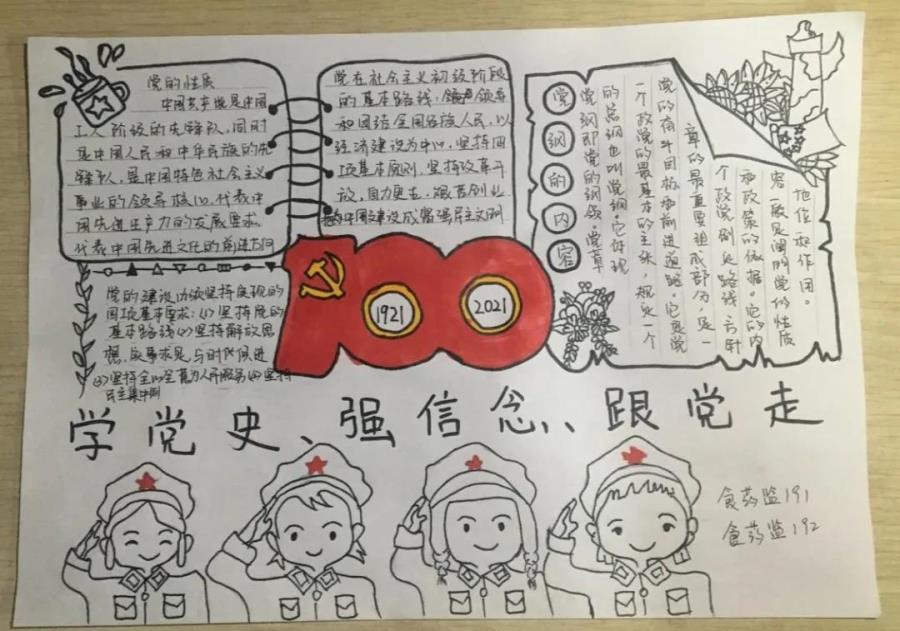 党的性质
中国共产党是中国
工人阶级的先锋队,同时
是中国人民和中华民族的先
锋队,是中国特色社会主义
事业的领导核心,代表中
国先进生产力的发展要求
代表中国先进文化的前进方向
党在社会主义初级阶段
的基本路线:领导
和团结全国各族人民,以
经济建设为中心,坚持四
项基本原则,坚持改革开
放,自力更生,艰苦创业
中国建设成富强民主文明
党的建设必须坚持实现的
四项基本要求:(1)坚持党的
基本路线(2)坚持解放思
想,实事求是,与时代俱进
(3)坚持全心全意为人民服务(4)坚持
民主集中制
1921
2021
党纲的内容
党纲即党的纲领。党章
的总纲也叫党纲。它体现
一个政党的最基本的主张,规定一个
党的奋斗目标和前进道路。它是党
章的最重要组成部分,是一
个政党制定路线方针
和政策的依据。它的内
容一般是阐明党的性质
地位和作用。
学党史、强信念、跟党走
食药监191
食药监192